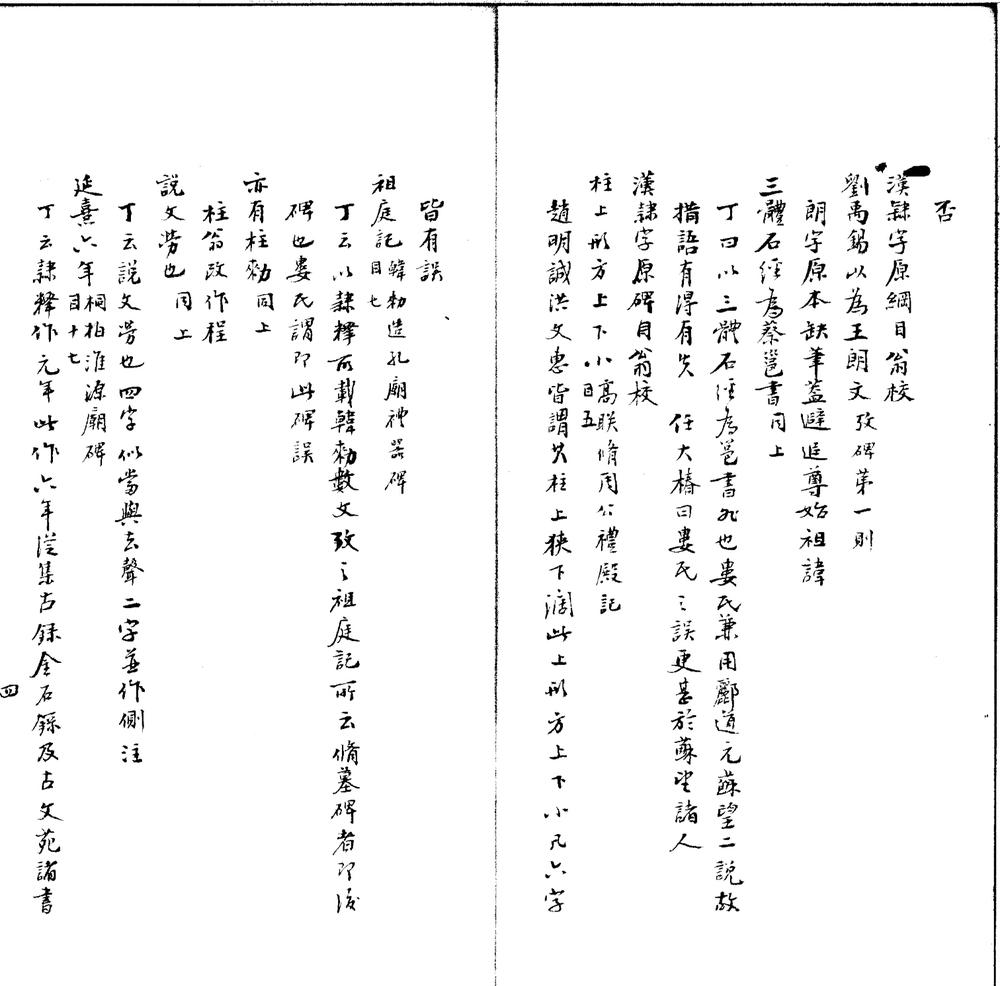 否
漢隸字原綱目翁校
劉禹錫以為王朗文攷碑第一則
朗字原本缺筆蓋避追尊始祖諱
三體石經為蔡邕書同上
丁曰以三體石經為邕書非也婁氏兼用酈道元蘇望二說故
措語有得有失 任大椿曰婁氏之誤更甚於蘇望諸人
漢隸字原碑目翁校
柱上形方上下小高联脩周公禮殿記目五
趙明誠洪文惠皆謂其柱上狹下濶此上形方上下小凡六字
皆有誤
祖庭記韓勑造孔廟禮器碑目七
丁云以隸釋所載韓勑數文攷之祖庭記所云脩墓碑者即後
碑也婁氏謂即此碑誤
亦有柱勑同上
柱翁改作程
說文勞也同上
丁云說文勞也四字似當與去聲二字並作側注
延熹六年桐柏淮源廟碑目十七
丁云隸釋作元年此作六年從集古錄金石錄及古文苑諸書
四